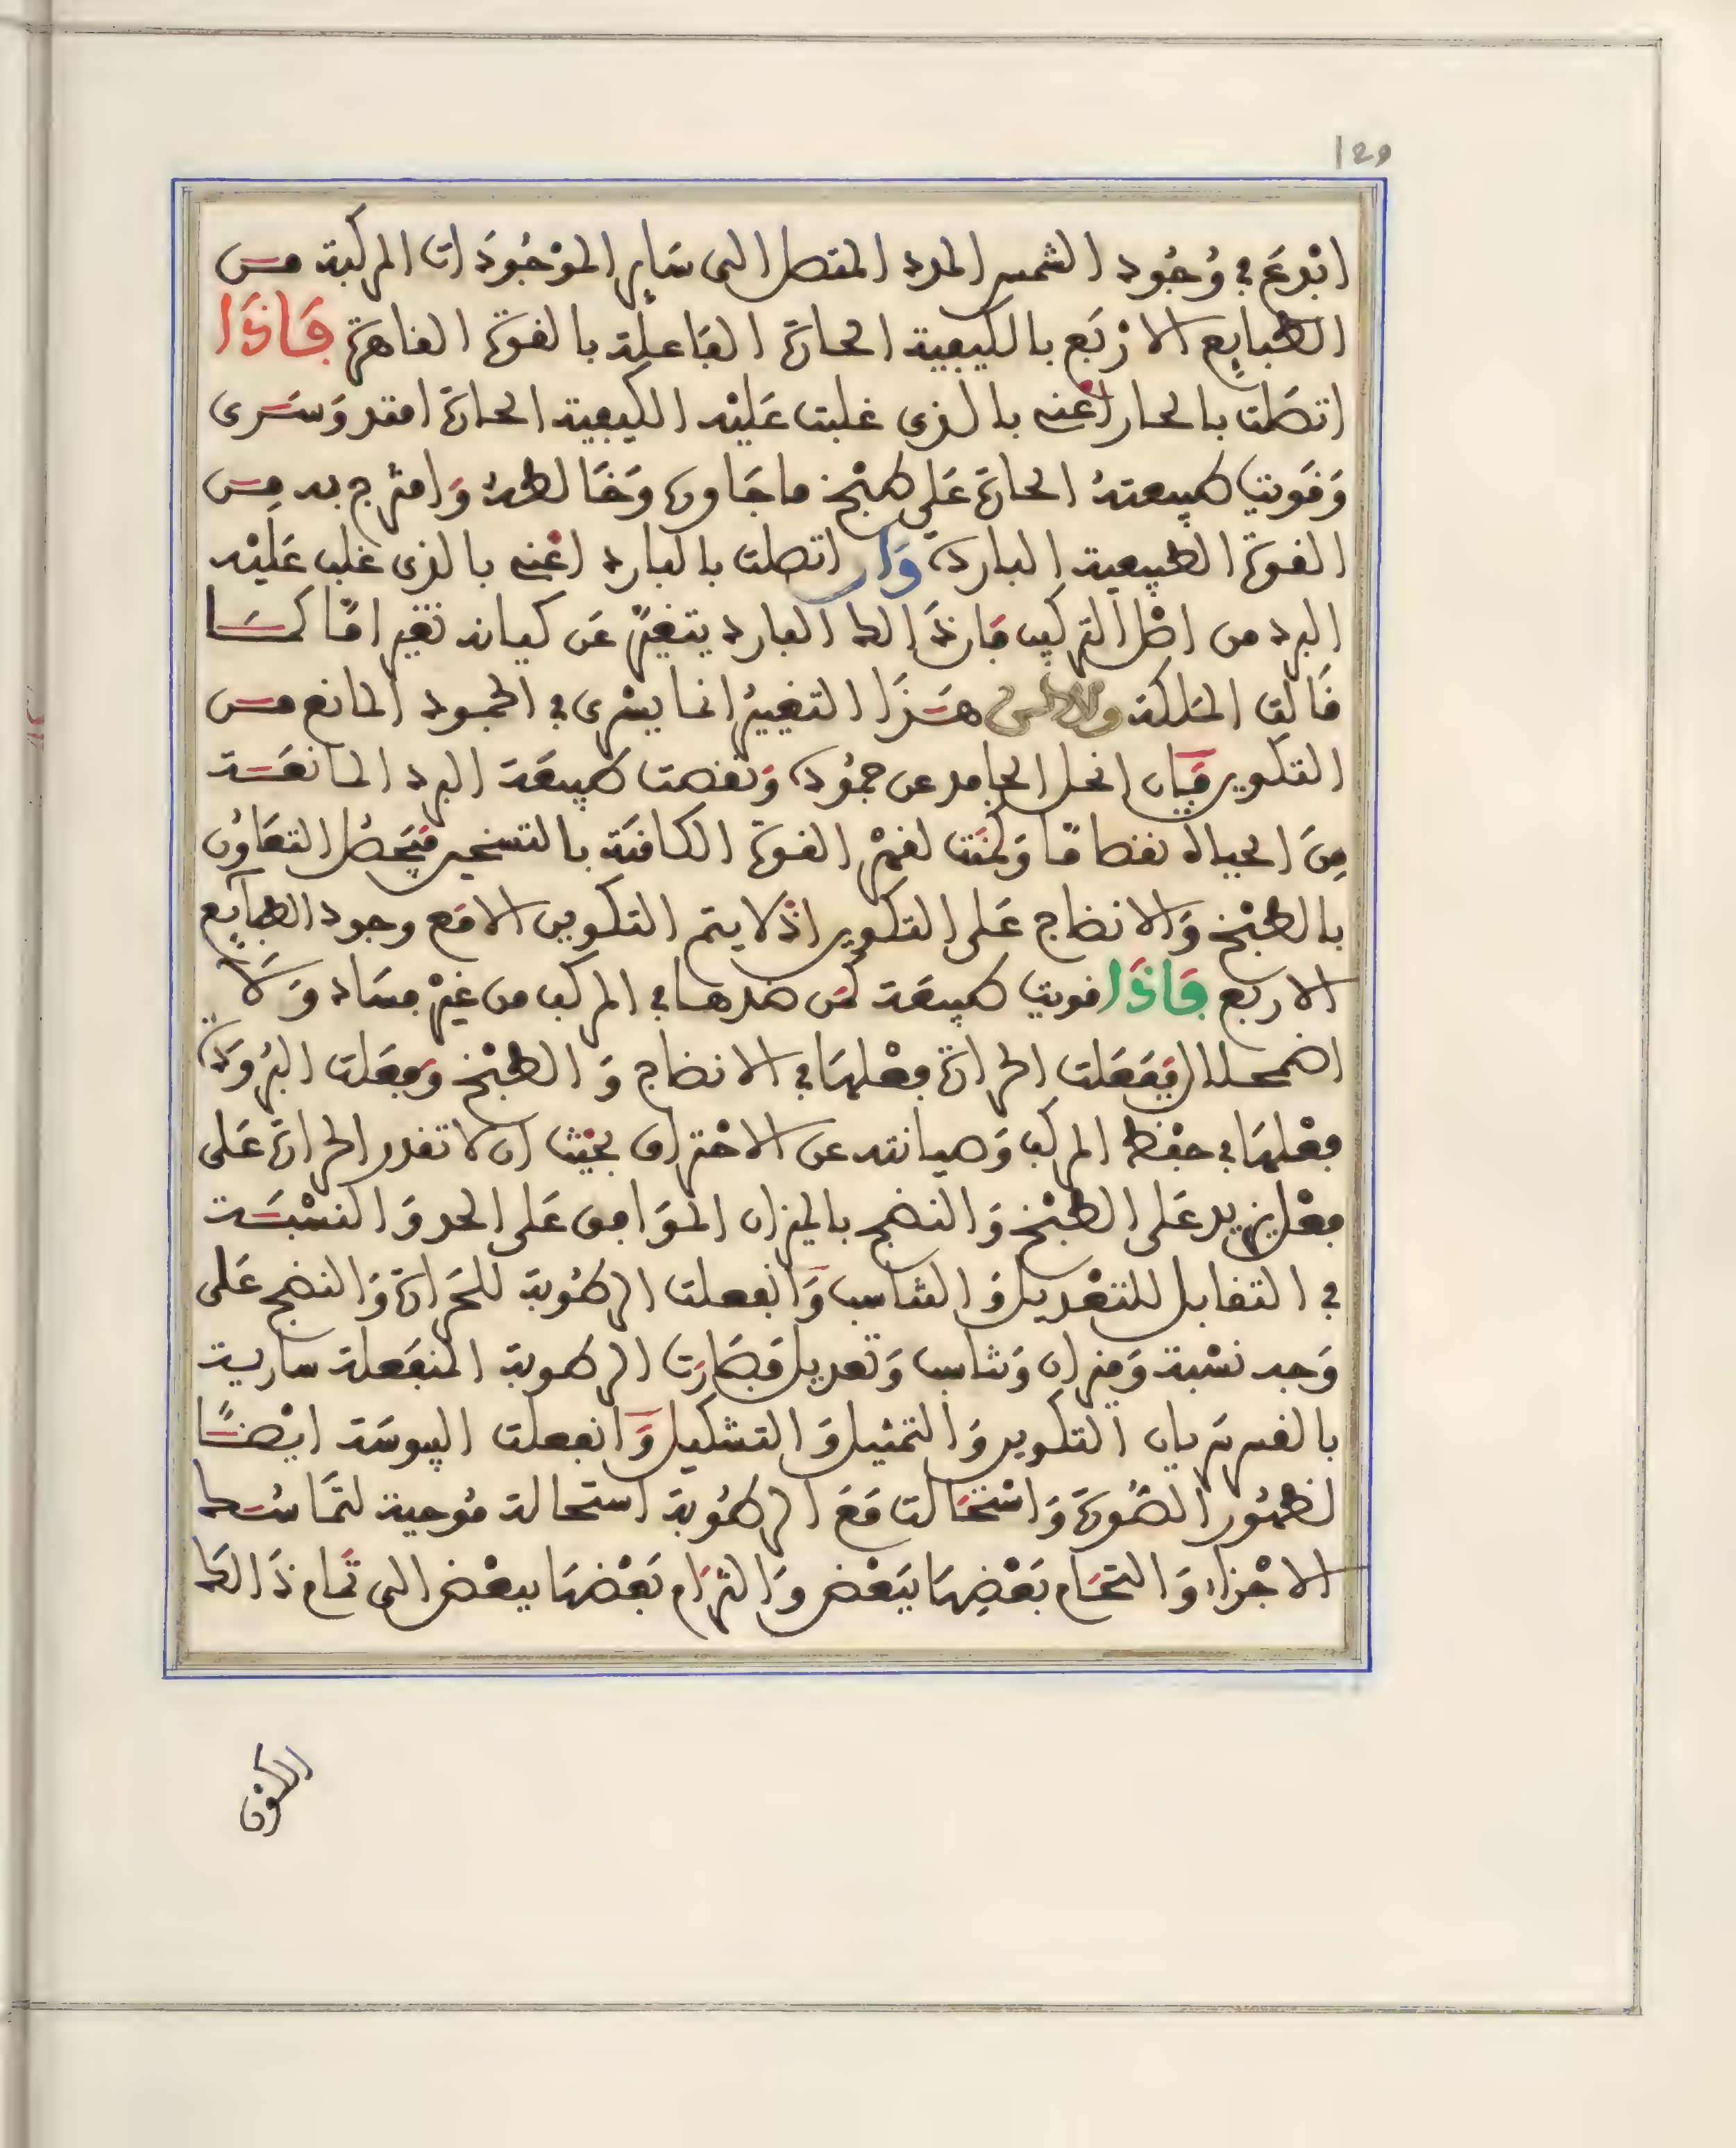 129
ابدع في وُجُود الشمس المدد المتصل الى سَاير الموْجُودَات المركبة مـن
الطبايع الارْبَع بالكيفية الحارة الفَاعلة بالقوة القاهرة فَاذَا
اتصَلت بالحـار اعْنى بالذى غلبت عَليْه الكيفية الحـارة امتد وَسَـرى
وَقَويت طبيعتهُ الحارة عَلى طبْخ ما جَاوره وَخَالطهُ وَامتزج به مـن
القوة الطبيعية الباردة وَان اتصلت بالبارد اعْنى بالذى غلب عَليْه
البرد من اصْل التركيب فان ذَالك البارد يتغيرُ عَن كيانه تغيرا مَّا كمـا
قَالت الملكة هـذَا التغييرُ انما يسْرى في الجمود المانع مـن
التكوين فَان انحـل الجامد عن جمُوده وَنقصت طبيعَة البرد المانعَـة
مِنَ الحياة نقصا مَّا وَلحقت لقهْر القـوة الكامنة بالتسخين فيَحصُل التعَاوُن
بالطبْخ وَالانضاج عَلى التكوين اذْ لا يتم التكوين الا مَع وجود الطبايع
الاربع فَاذَا قويت طبيعَة عَن ضدها في المركب من غيْر فسَاد وَلَا
اضمحـلال فَفعَلت الحرارة فعْلهَا في الانضاج وَالطبْخ وفعَلت البُرودَة
فعْلهَا في حفْظ المركب وَصيانته عن الاحْتراق بحَيْث ان لا تقدر الحرارة عَلى
فعْل يزيد عَلى الطبْخ وَالنضج بالميزان الموَافق عَلى الحد وَالنسْبَـة
في التقابل للتعْديل وَالتناسب وَانفعلت الرطُوبة للحَرارة وَالنضج عَلى
وَجه نسْبة وَميزان وَتناسب وَتعديل فصَارت الرطوبة المنفَعلة سارية
بالقسر سَريان التكوين وَالتمثيل وَالتشكيل وَانفعلت اليبوسَة ايْضـًا
لظهُور الصُّورة وَاسْتحَالت مَعَ الرطُوبة استحالة مُوجبة لتمَاسُـك
الاجْزاء وَالتحَام بَعْضِهَا ببَعْض وَالتزَام بَعْضهَا ببعْض الى تمَام ذَالك
الكَوْن